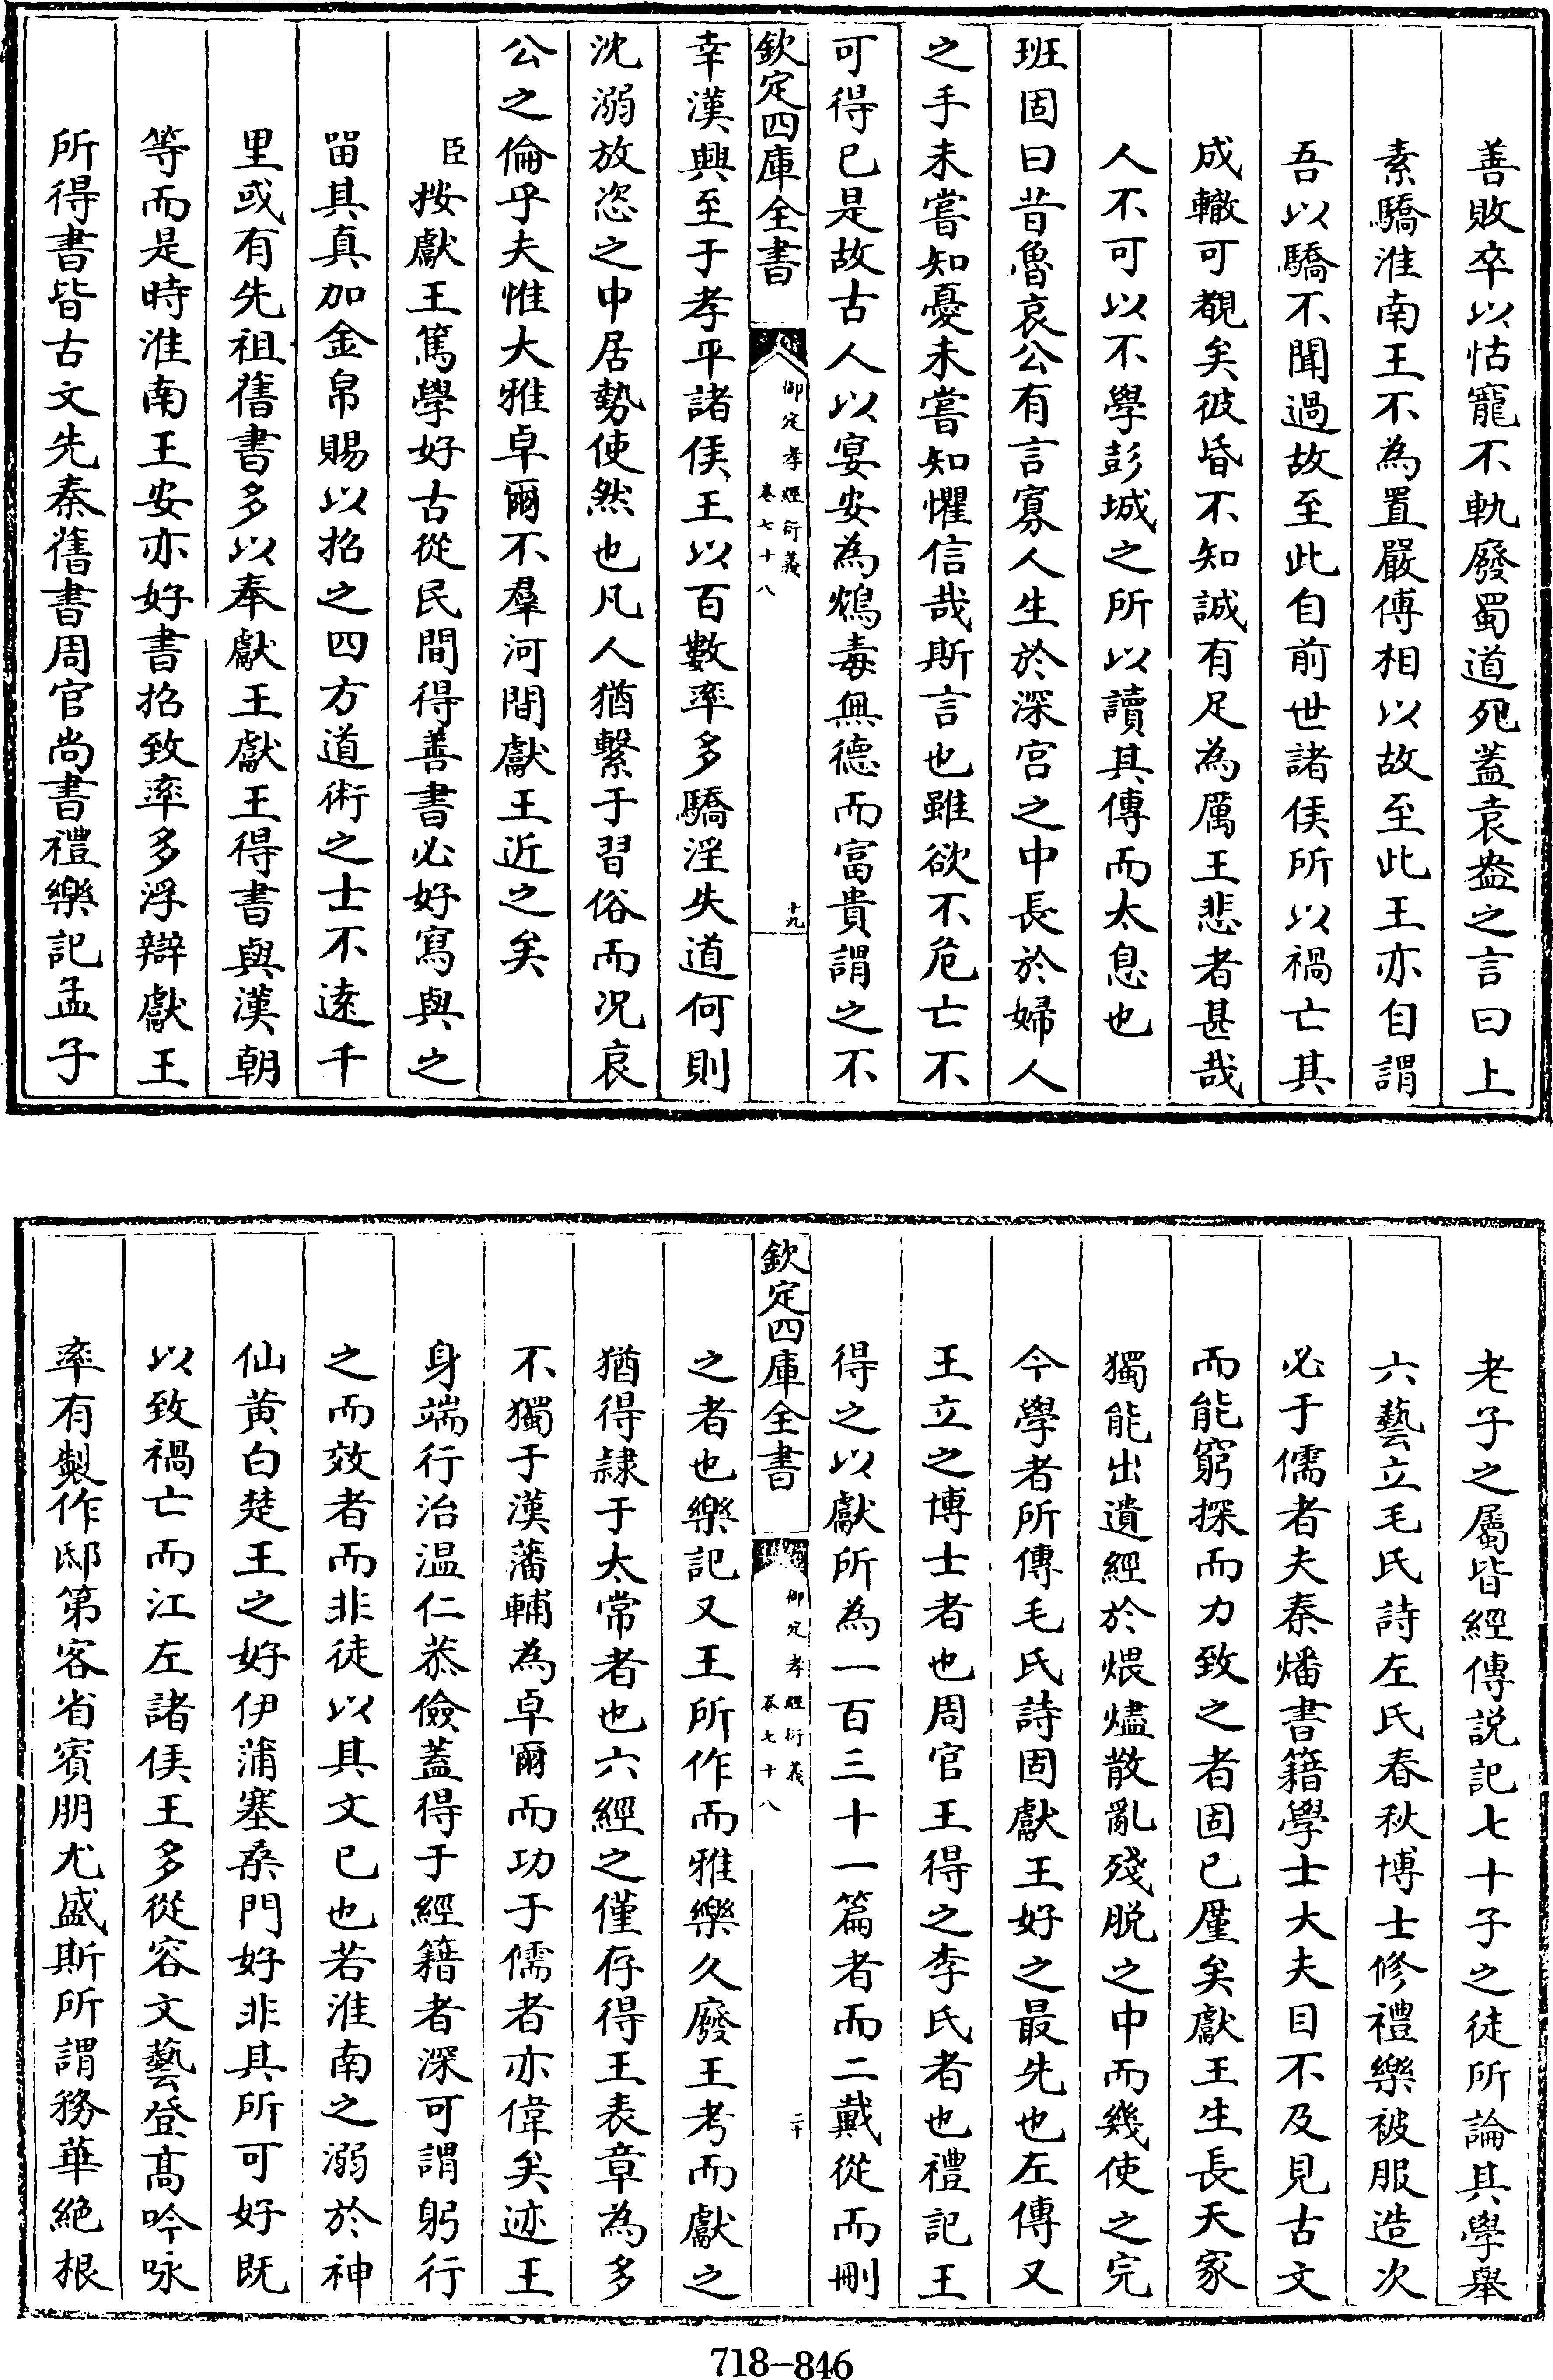 善敗卒以怙寵不軌廢蜀道死蓋袁盎之言曰上
素驕淮南王不為置嚴傅相以故至此王亦自謂
吾以驕不聞過故至此自前世諸侯所以禍亡其
成轍可覩矣彼昏不知誠有足為厲王悲者甚哉
人不可以不學彭城之所以讀其傳而太息也
班固曰昔魯哀公有言寡人生於深宫之中長於婦人
之手未嘗知憂未嘗知懼信哉斯言也雖欲不危亡不
可得已是故古人以宴安為鴆毒無德而富貴謂之不
欽定四庫全書
御定孝經衍義
卷七十八
十九
幸漢興至于孝平諸侯王以百數率多驕淫失道何則
沈溺放恣之中居勢使然也凡人猶繫于習俗而况哀
公之倫乎夫惟大雅卓爾不羣河間獻王近之矣
臣按獻王篤學好古從民間得善書必好寫與之
留其真加金帛賜以招之四方道術之士不遠千
里或有先祖舊書多以奉獻王獻王得書與漢朝
等而是時淮南王安亦好書招致率多浮辯獻王
所得書皆古文先秦舊書周官尚書禮樂記孟子
老子之屬皆經傳説記七十子之徒所論其學舉
六藝立毛氏詩左氏春秋博士修禮樂被服造次
必于儒者夫秦燔書籍學士大夫目不及見古文
而能窮探而力致之者固已厪矣獻王生長天家
獨能出遺經於煨燼散亂殘脱之中而幾使之完
今學者所傳毛氏詩固獻王好之最先也左傳又
王立之博士者也周官王得之李氏者也禮記王
得之以獻所為一百三十一篇者而二戴從而刪
欽定四庫全書
御定孝經衍義
卷七十八
二十
之者也樂記又王所作而雅樂久廢王考而獻之
猶得隷于太常者也六經之僅存得王表章為多
不獨于漢藩輔為卓爾而功于儒者亦偉矣迹王
身端行治温仁恭儉蓋得于經籍者深可謂躬行
之而效者而非徒以其文已也若淮南之溺於神
仙黄白楚王之好伊蒲塞桑門好非其所可好既
以致禍亡而江左諸侯王多從容文藝登高吟咏
率有製作邸第客省賓朋尤盛斯所謂務華絶根
718-846